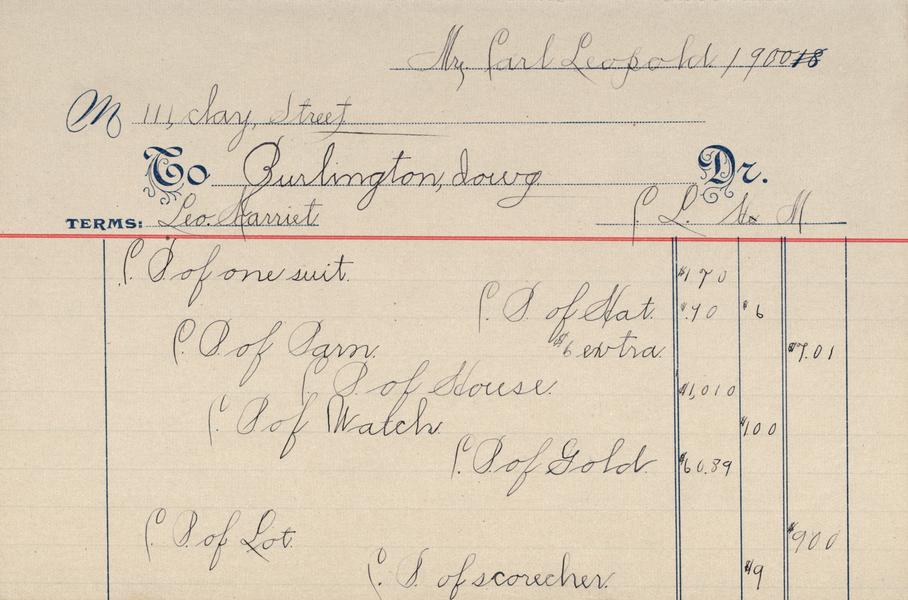 Mr, Carl Leopold. 190018
M 111, clay, Street
To Burlington, Iowa Dr.
TERMS: Leo. Harriet C. L. & M
C. P. of one suit. $1 7 0
C. P. of Hat. $.90 $6
C. P. of Barn. $6 extra. $7.01
C. P. of House. $1,010
C. P. of Watch. $100
C. P. of Gold. $60.89
C. P. of Lot. $900
C. P. of scorecher. $9